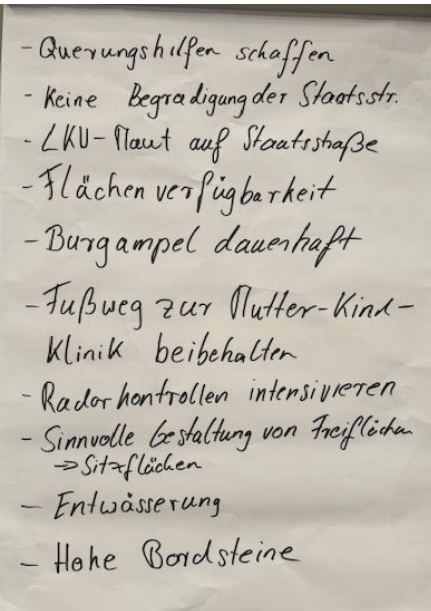 - Querungshilfen schaffen
- Keine Begradigung der Staatsstr.
- LKW-Maut auf Staatsstraße
- Flächenverfügbarkeit
- Burgampel dauerhaft
- Fußweg zur Mutter-Kind-
Klinik beibehalten
- Radarkontrollen intensivieren
- Sinnvolle Gestaltung von Freiflächen
⇒ Sitzflächen
- Entwässerung
- Hohe Bordsteine